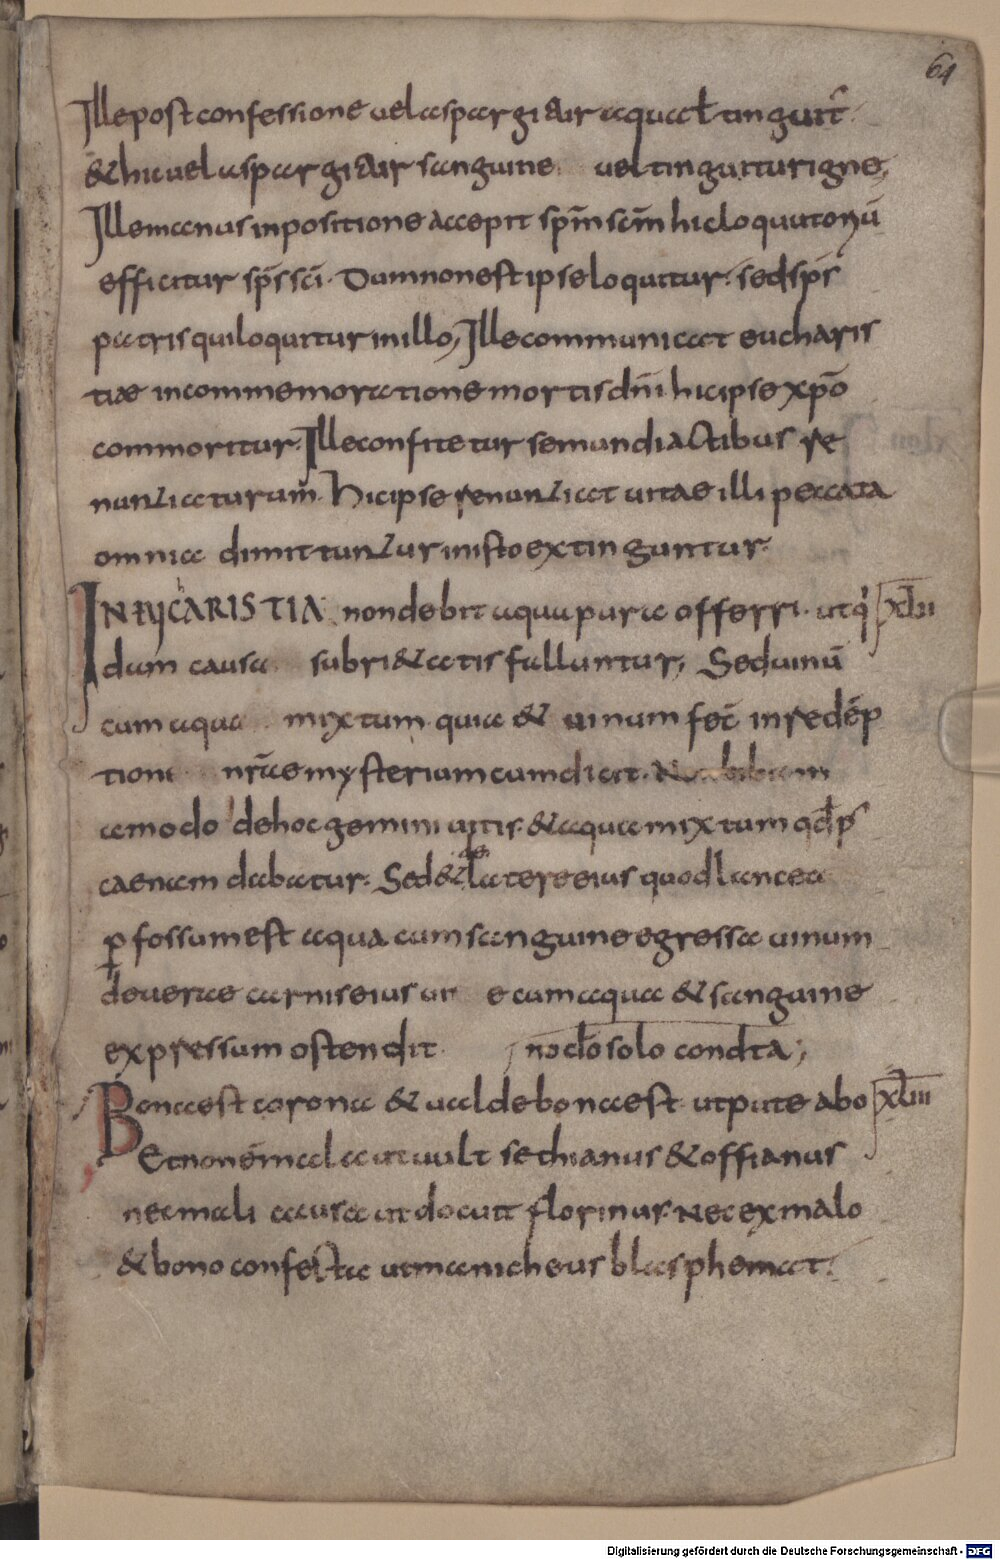 64
Ille post confessione uel aspargitur aqua ł tinguit᷑
& hic uel aspargitur sanguine uel tinguitur igne;
Ille manus inpositione accepit sp̄m sc̄m hic loquutorū
efficitur sp̄s sc̄i. Dum non est ipse loquitur. sed sp̄s
patris qui loquitur in illo; Ille communicat eucharis
tiae in commemoratione mortis dn̄i hic ipse xp̄o
commoritur. Ille confitetur se mundi actibus re
nuntiaturum. Hic ipse renuntiat uitae illi peccata
omnia dimittuntur in isto extinguntur.
IN EUCARISTIA non debit aqua pura offerri. ut q᷑ xlii
dam causa subri&atis falluntur; Sed uinū
cum aqua mixtum quia & uinum fec̄ in redēp
tione nr̄ae mysterium cum dicit. Non bibam
amodo de hoc gemini uitis. & aqua mixtum qđ p̄
caenam dabatur. Sed & de latere eius quod lancea
ꝑfossum est aqua cum sanguine egressa uinum
de uerae carnis eius uit e cum aqua & sanguine
expressum ostendit no cło solo condta;
Bona est corona & ualde bona est utpute a bo xliii
Et non ē mala ut uult sethianus & offianus
nec mali causa ut docuit florinus. Nec ex malo
& bono confecta ut manicheus blasphemat.
Digitalisierung gefördert durch die Deutsche Forschungsgemeinschaft - DFG